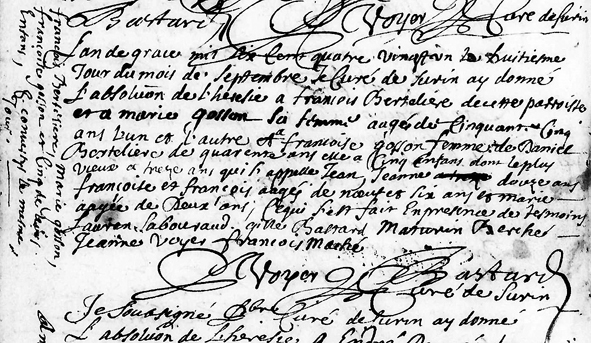 Bastard Voyer Curé de Surin
L'an de grace mil six cent quatre vingt un le huitiesme
Jour du mois de Septembre je Curé de Surin ay donné
L'absolution de l'heresie a francois Berteliere de cette parroisse
et a marie gosson sa femme aagés de Cinquante Cinq
ans l'un et l'autre et a francoise gosson femme de Daniel
Bertelière de quarente ans elle a Cinq enfans dont le plus
vieux a treze ans qui s'appelle Jean, Jeanne douze ans
francoise et francois aagés de noeuf et six ans et marie
aagée de Deux ans, Ce qui s'est fait En presence de tesmoins
Lauren Sabouraud, gille Bastard Maturin Berche
Jeanne Voyer francois
Voyer Bastard
Curé de Surin
Je Soussigné Curé de Surin ay donné
L'absolution de l'heresie A
francois Berteliere, Marie gosson,
francoise gosson et Cinq de leurs
Enfans, Convertys le mesme
Jour.